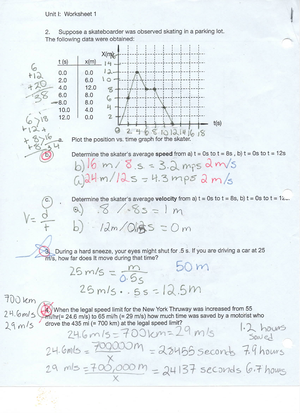 Unit I: Worksheet 1
2. Suppose a skateboarder was observed skating in a parking lot.
The following data were obtained:
t (s) x(m)
0.0 0.0
2.0 6.0
4.0 12.0
6.0 8.0
8.0 8.0
10.0 4.0
12.0 0.0
X(m)
14
12
10
8
6
4
2
0 2 4 6 8 10 12 14 16 18
t(s)
6
+12
+20
38
Plot the position vs. time graph for the skater.
Determine the skater's average speed from a) t = 0s to t = 8s , b) t = 0s to t = 12s
b) 16 m / 8 s = 3.2 mps 2 m/s
a) 24 m / 12 s = 4.3 mps 2 m/s
Determine the skater's average velocity from a) t = 0s to t = 8s, b) t = 0s to t =
V = d
t
a) 8 / 8s = 1 m
b) 12m / 0 = 0 m
During a hard sneeze, your eyes might shut for .5s. If you are driving a car at 25
m/s, how far does it move during that time?
25 m/s = m
0.5s
50 m
25 m/s · .5s = 12.5m
When the legal speed limit for the New York Thruway was increased from 55
mi/hr(= 24.6 m/s) to 65 mi/h (= 29 m/s) how much time was saved by a motorist who
drove the 435 mi (= 700 km) at the legal speed limit?
700 km
24.6 m/s
29 m/s
24.6 m/s = 700km = 29 m/s
1.2 hours
saved
24.6 m/s = 700000 m
x
= 28455 seconds 7.9 hours
29 m/s = 700,000 m
x
= 24137 seconds 6.7 hours